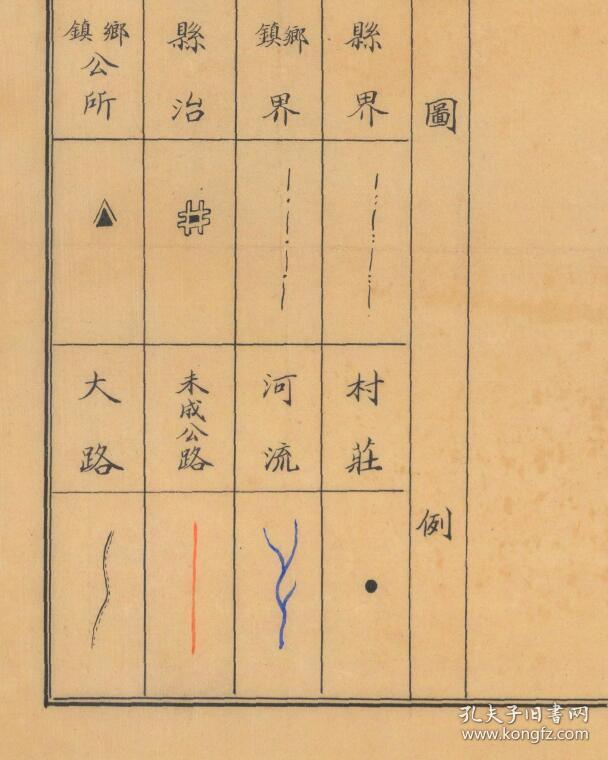 圖例
縣界
鄉鎮界
縣治
鄉鎮公所
村莊
河流
未成公路
大路
孔夫子旧书网
www.kongfz.com